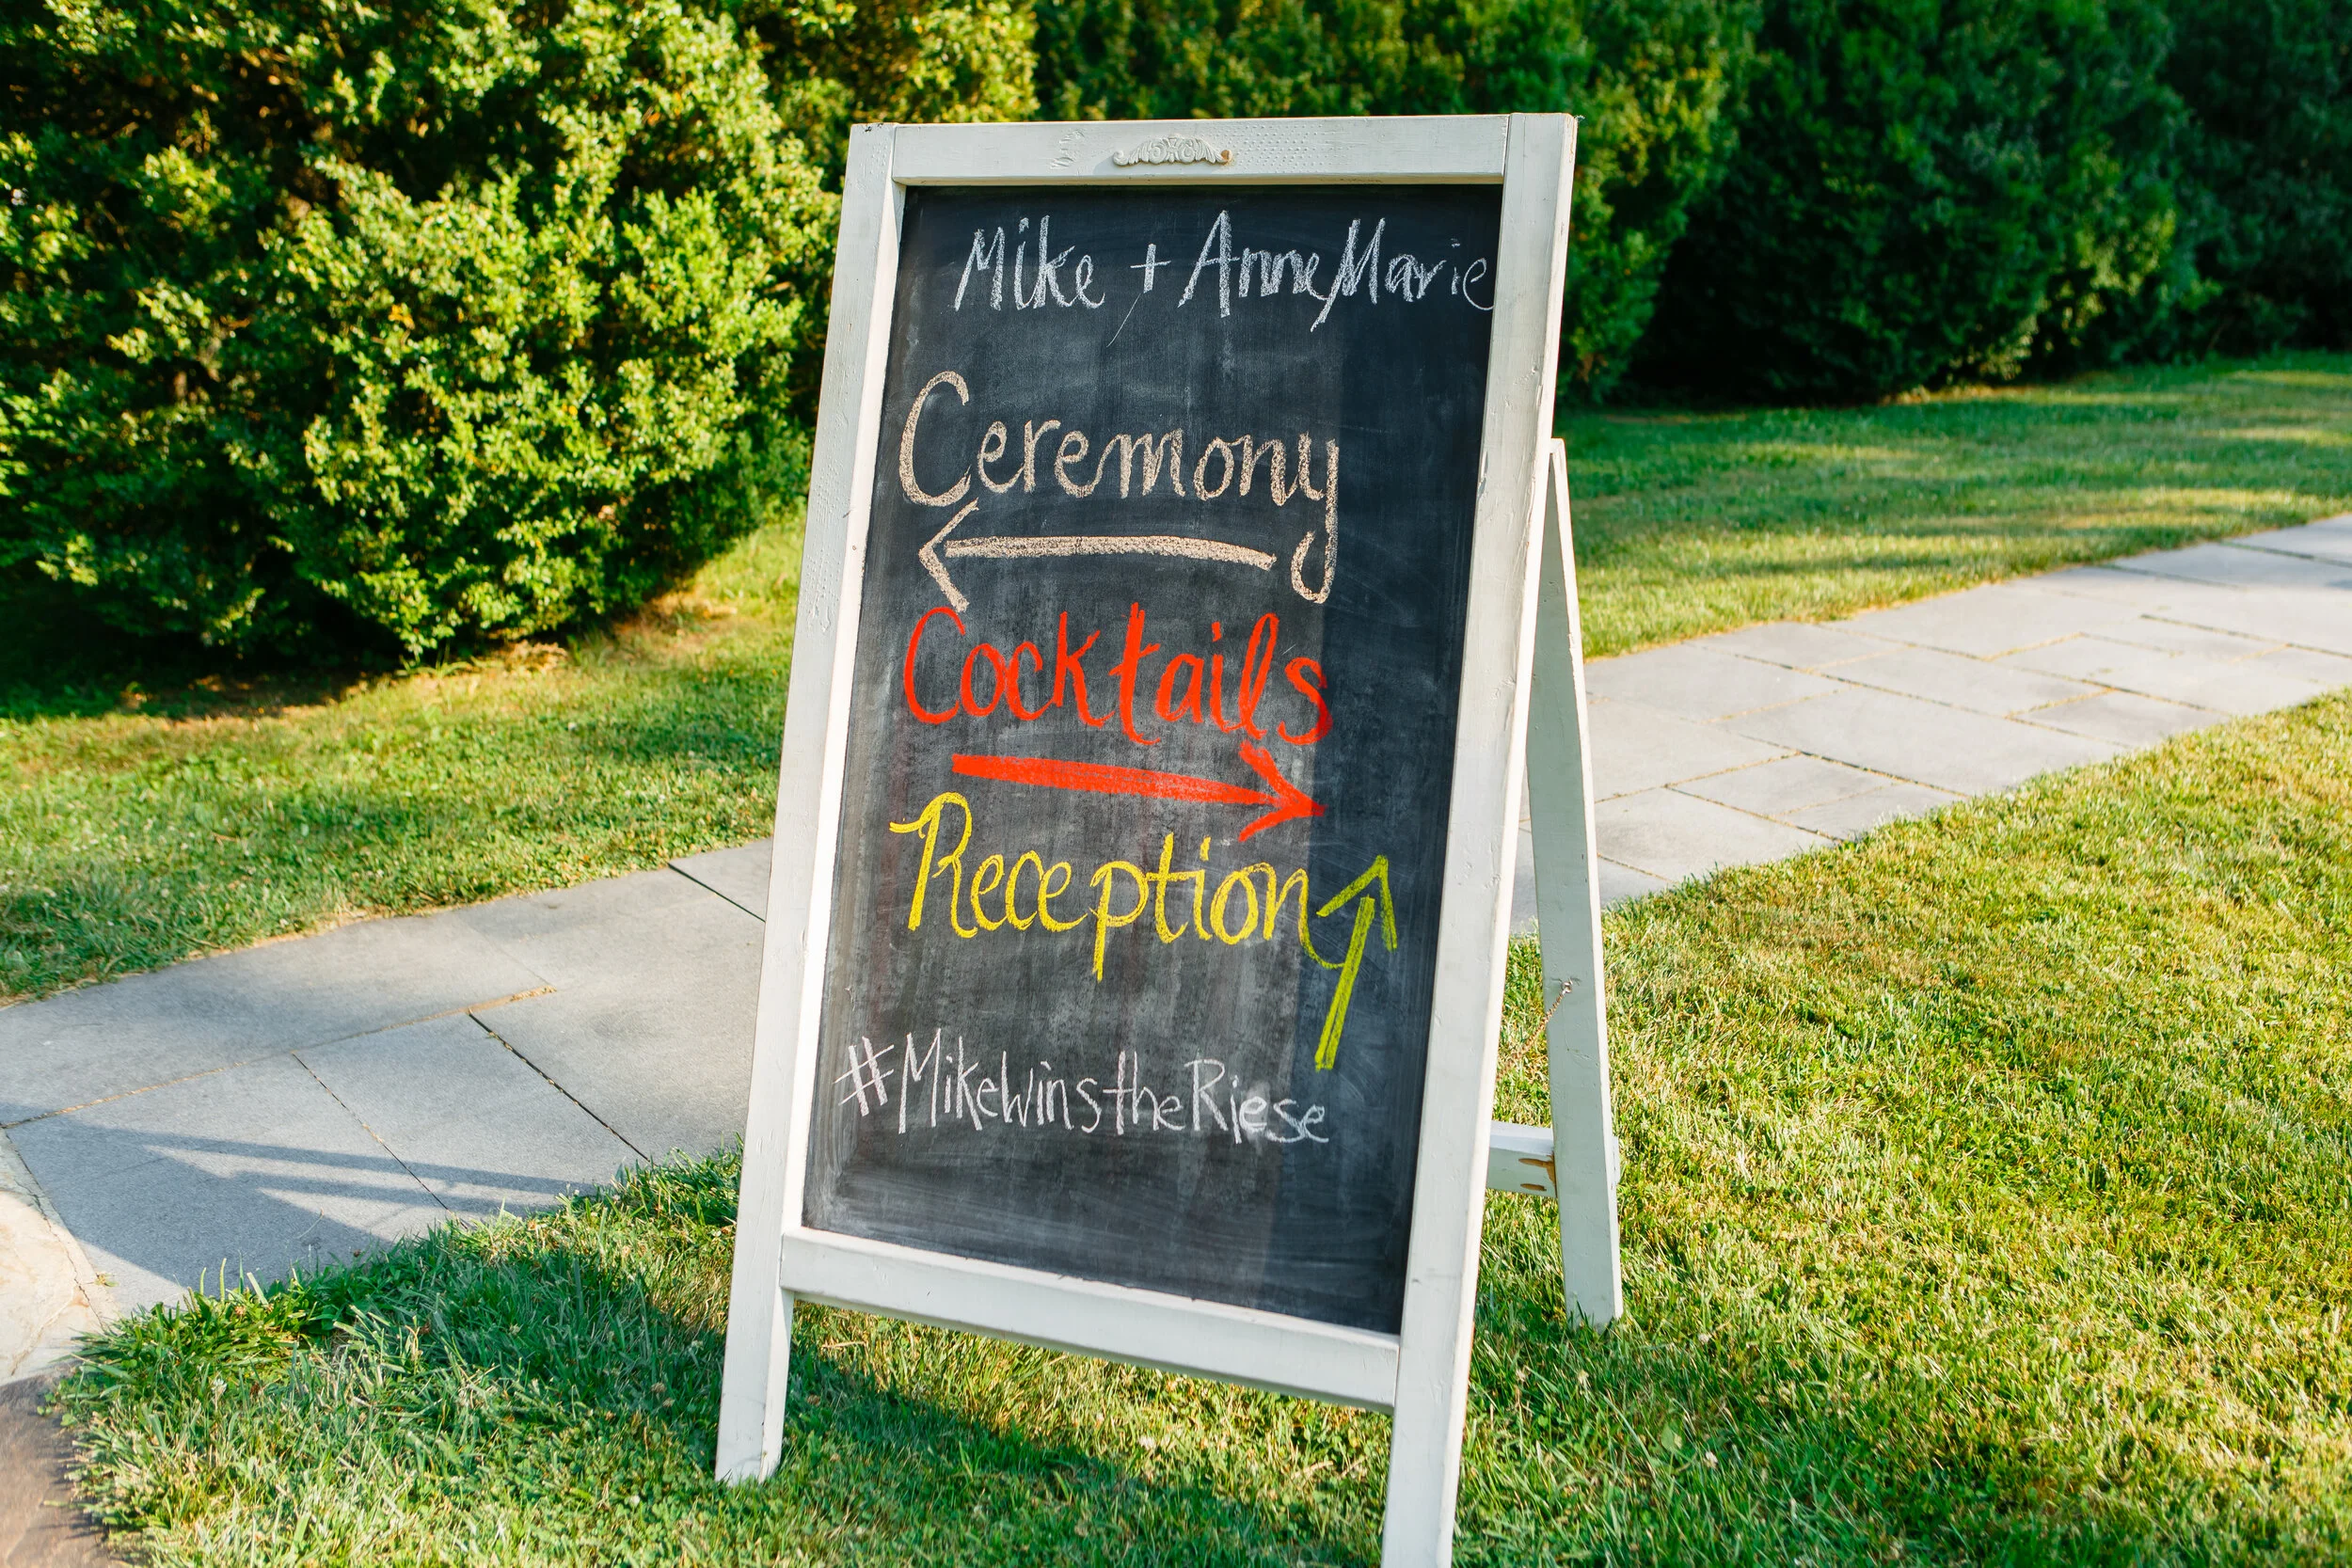 Mike + AnneMarie
Ceremony
Cocktails
Reception
#MikeWinstheRiese